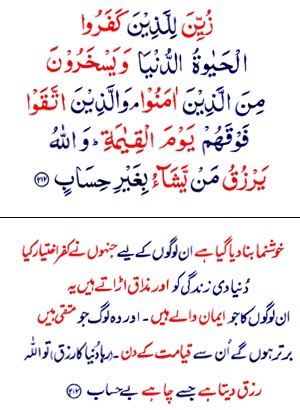 زُیِّنَ لِلَّذِیۡنَ کَفَرُوا
الۡحَیٰوۃُ الدُّنۡیَا وَیَسۡخَرُوۡنَ
مِنَ الَّذِیۡنَ اٰمَنُوۡا ۘ وَالَّذِیۡنَ اتَّقَوۡا
فَوۡقَہُمۡ یَوۡمَ الۡقِیٰمَۃِ ؕ وَ اللّٰہُ
یَرۡزُقُ مَنۡ یَّشَآءُ بِغَیۡرِ حِسَابٍ ﴿۲۱۲﴾
خوشنما بنا دیا گیا ہے ان لوگوں کے لیے جنہوں نے کفر اختیار کیا
دُنیاوی زندگی کو اور مذاق اڑاتے ہیں یہ
ان لوگوں کا جو ایمان والے ہیں ۔ اور وہ لوگ جو متقی ہیں
برتر ہوں گے اُن سے قیامت کے دن ۔ (رہا دُنیا کا رزق) تو اللہ
رزق دیتا ہے جسے چاہے بے حساب ﴿۲۱۲﴾